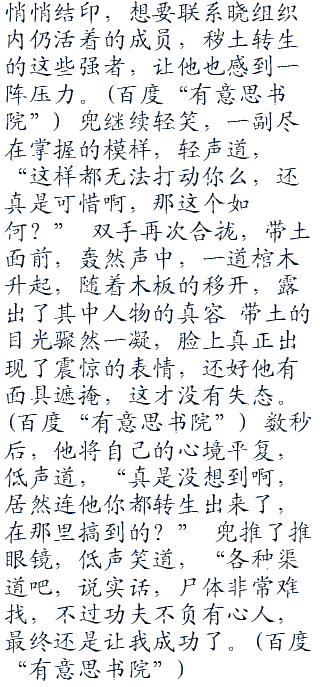 悄悄结印，想要联系晓组织
内仍活着的成员，秽土转生
的这些强者，让他也感到一
阵压力。(百度“有意思书
院”) 兜继续轻笑，一副尽
在掌握的模样，轻声道，
“这样都无法打动你么，还
真是可惜啊，那这个如
何？” 双手再次合拢，带土
面前，轰然声中，一道棺木
升起，随着木板的移开，露
出了其中人物的真容 带土的
目光骤然一凝，脸上真正出
现了震惊的表情，还好他有
面具遮掩，这才没有失态。
(百度“有意思书院”) 数秒
后，他将自己的心境平复，
低声道，“真是没想到啊，
居然连他你都转生出来了，
在那里搞到的？” 兜推了推
眼镜，低声笑道，“各种渠
道吧，说实话，尸体非常难
找，不过功夫不负有心人，
最终还是让我成功了。(百度
“有意思书院”)